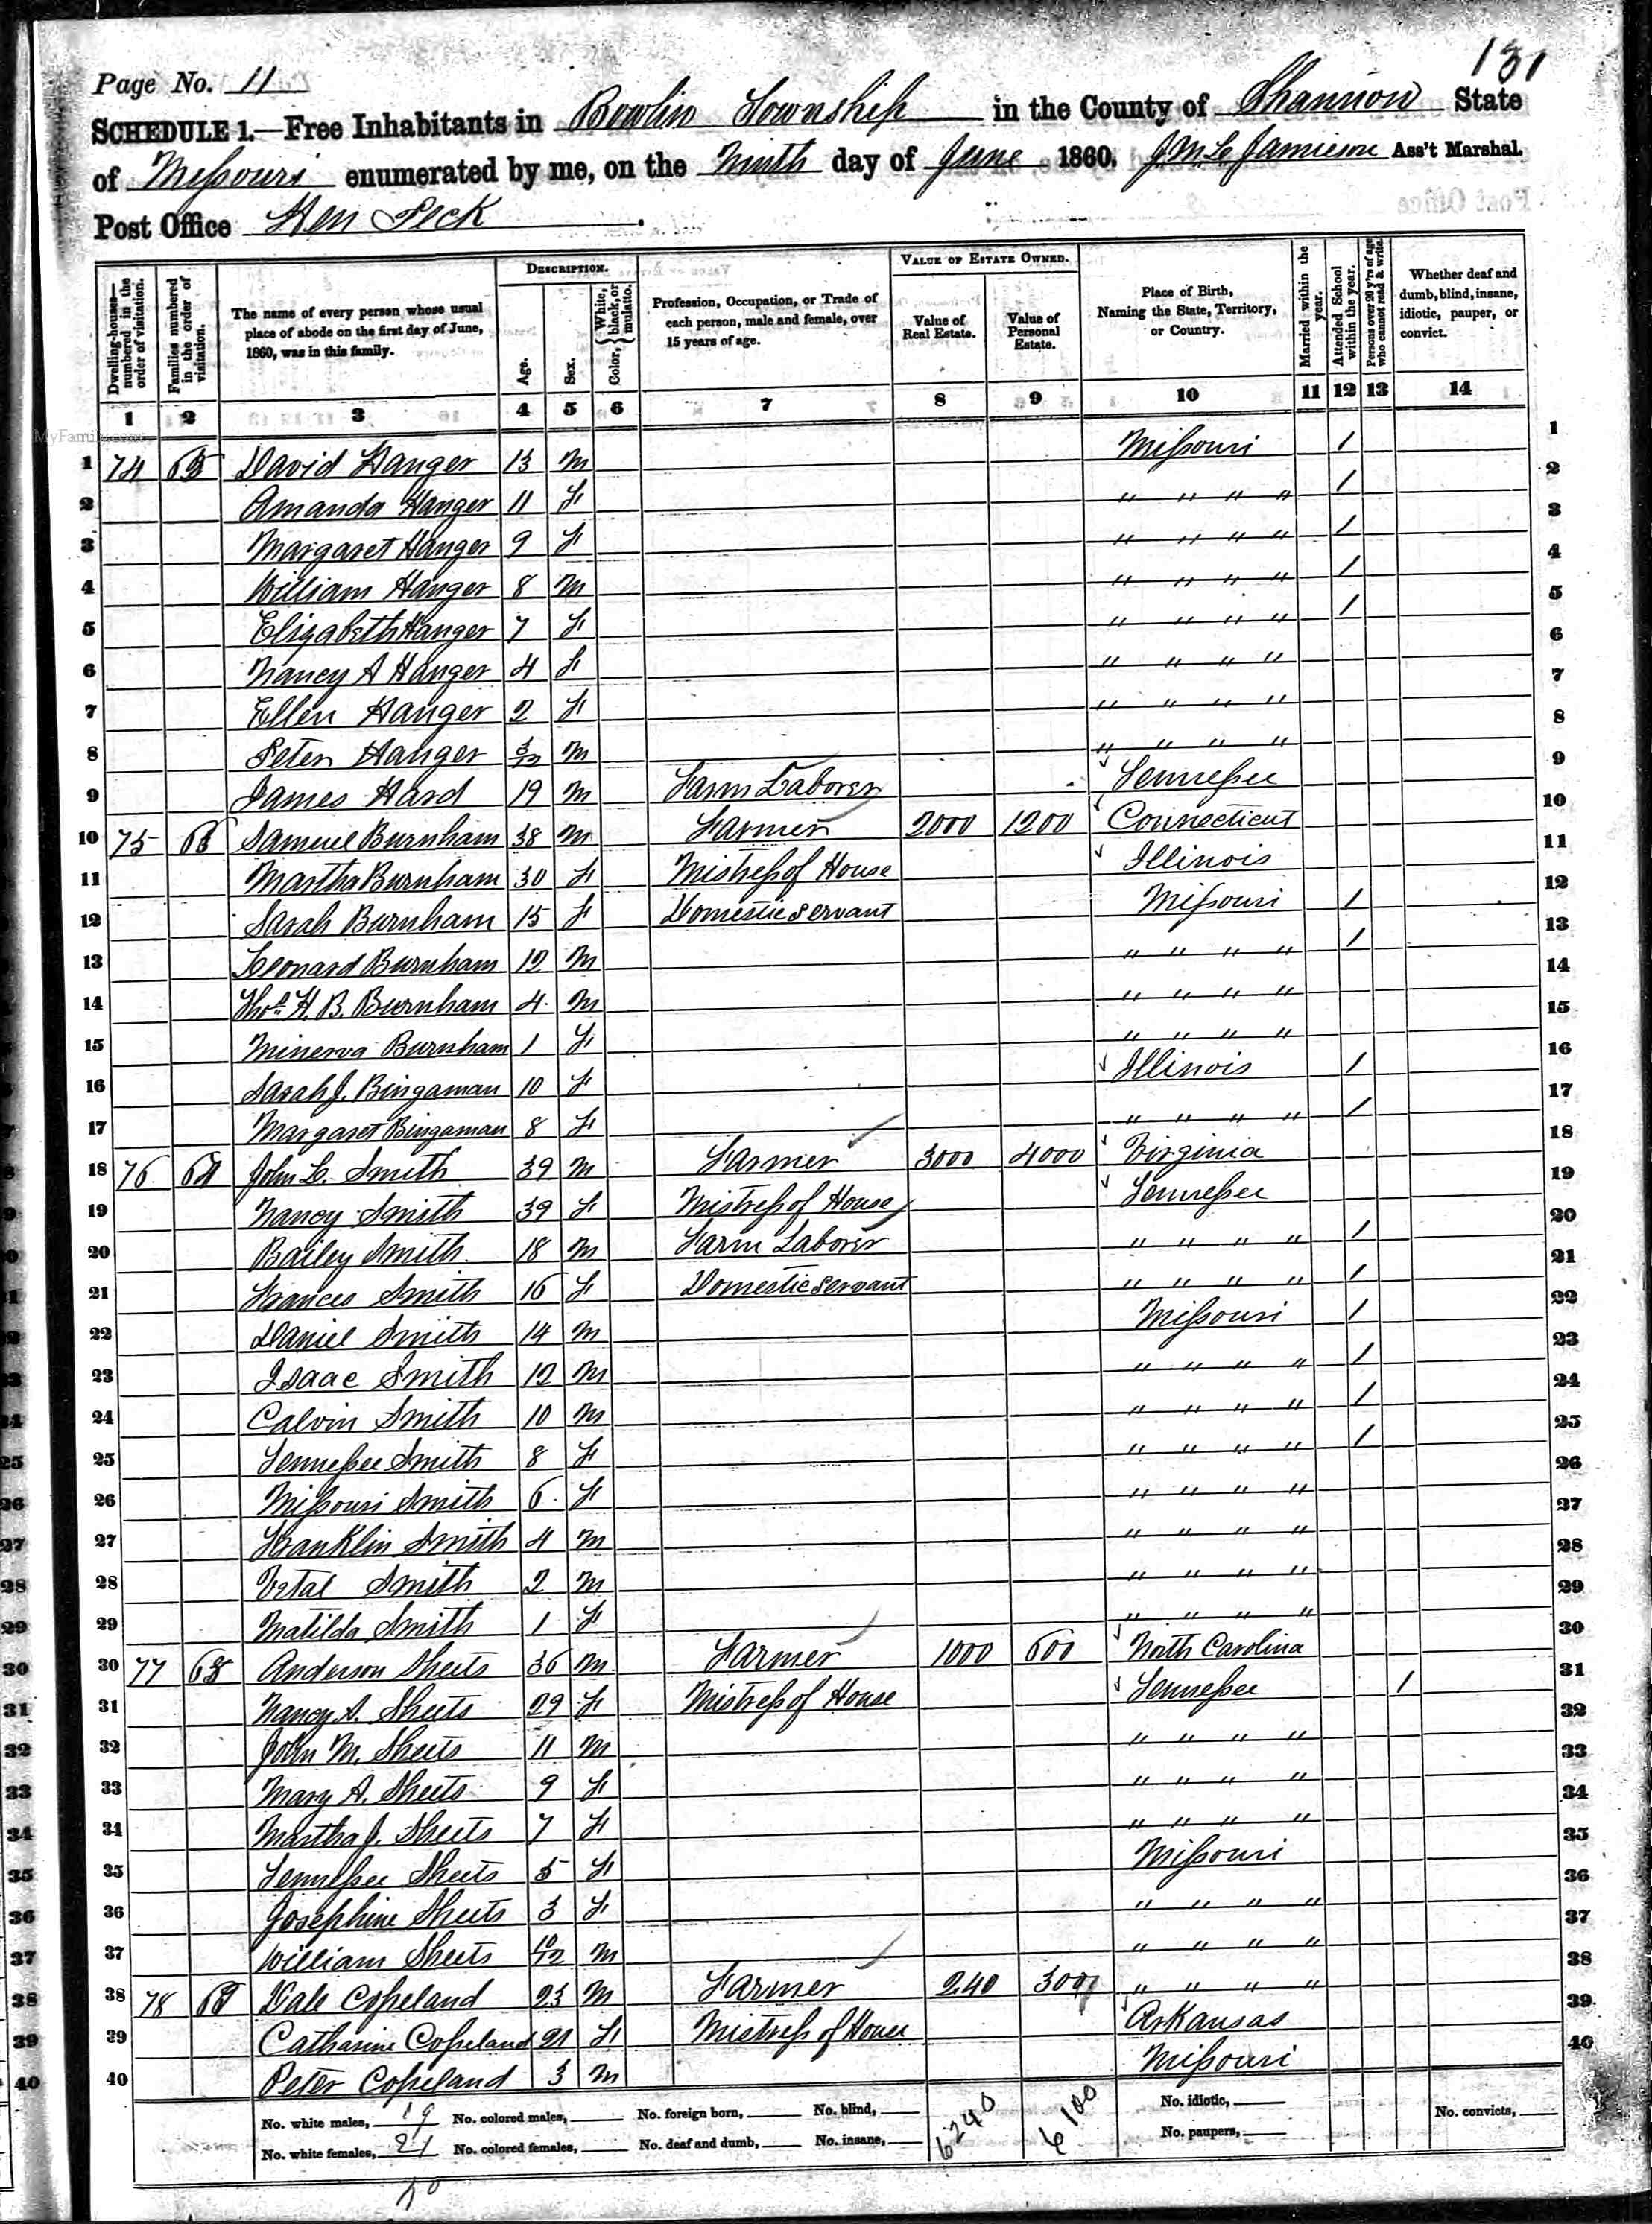 131
Page No. 11
SCHEDULE 1.—Free Inhabitants in Bowlin Township in the County of Shannon State
of Missouri enumerated by me, on the Ninth day of June 1860. J. M. L. Jamieson Ass't Marshal.
Post Office Hen Peck.
DESCRIPTION. VALUE OF ESTATE OWNED.
Dwelling-houses—numbered in the order of visitation. Families numbered in the order of visitation. The name of every person whose usual place of abode on the first day of June, 1860, was in this family. Age. Sex. Color, {White, black, or mulatto. Profession, Occupation, or Trade of each person, male and female, over 15 years of age. Value of Real Estate. Value of Personal Estate. Place of Birth, Naming the State, Territory, or Country. Married within the year. Attended School within the year. Persons over 20 y'rs of age who cannot read & write. Whether deaf and dumb, blind, insane, idiotic, pauper, or convict.
1 2 3 4 5 6 7 8 9 10 11 12 13 14
MyFamily.com
1 74 David Hanger 13 M Missouri / 1
2 Amanda Hanger 11 F " " " " / 2
3 Margaret Hanger 9 F " " " " / 3
4 William Hanger 8 M " " " " / 4
5 Elizabeth Hanger 7 F " " " " / 5
6 Nancy A Hanger 4 F " " " " 6
7 Ellen Hanger 2 F " " " " 7
8 Peter Hanger M " " " " 8
9 James Hard 19 M Farm Laborer Tennessee 9
10 75 Samuel Burnham 38 M Farmer 2000 1200 Connecticut 10
11 Martha Burnham 30 F Mistress of House Illinois 11
12 Sarah Burnham 15 F Domestic Servant Missouri / 12
13 Leonard Burnham 12 M " " " " / 13
14 Thos. H. B. Burnham 4 M " " " " 14
15 Minerva Burnham 1 F " " " " 15
16 Sarah J. Bingaman 10 F Illinois / 16
17 Margaret Bingaman 8 F " " " " / 17
18 76 64 John L. Smith 39 M Farmer 3000 4000 Virginia 18
19 Nancy Smith 39 F Mistress of House Tennessee 19
20 Bailey Smith 18 M Farm Laborer " " " " / 20
21 Frances Smith 16 F Domestic Servant " " " " / 21
22 Daniel Smith 14 M Missouri / 22
23 Isaac Smith 12 M " " " " / 23
24 Calvin Smith 10 M " " " " / 24
25 Tennessee Smith 8 F " " " " / 25
26 Missouri Smith 6 F " " " " 26
27 Franklin Smith 4 M " " " " 27
28 Smith 2 M " " " " 28
29 Matilda Smith 1 F " " " " 29
30 77 65 Anderson Sheets 36 M Farmer 1000 600 North Carolina 30
31 Nancy A. Sheets 29 F Mistress of House Tennessee / 31
32 John M. Sheets 11 M " " " " 32
33 Mary A. Sheets 9 F " " " " 33
34 Martha J. Sheets 7 F " " " " 34
35 Tennessee Sheets 5 F Missouri 35
36 Josephine Sheets 3 F " " " " 36
37 William Sheets 10/12 M " " " " 37
38 78 Dale Copeland 23 M Farmer 240 300 " " " " 38
39 Catharine Copeland 21 F Mistress of House Arkansas 39
40 Peter Copeland 3 M Missouri 40
No. white males, 19 No. colored males, No. foreign born, No. blind, 6240 6100 No. idiotic, No. convicts,
No. white females, 21 No. colored females, No. deaf and dumb, No. insane, No. paupers,
40